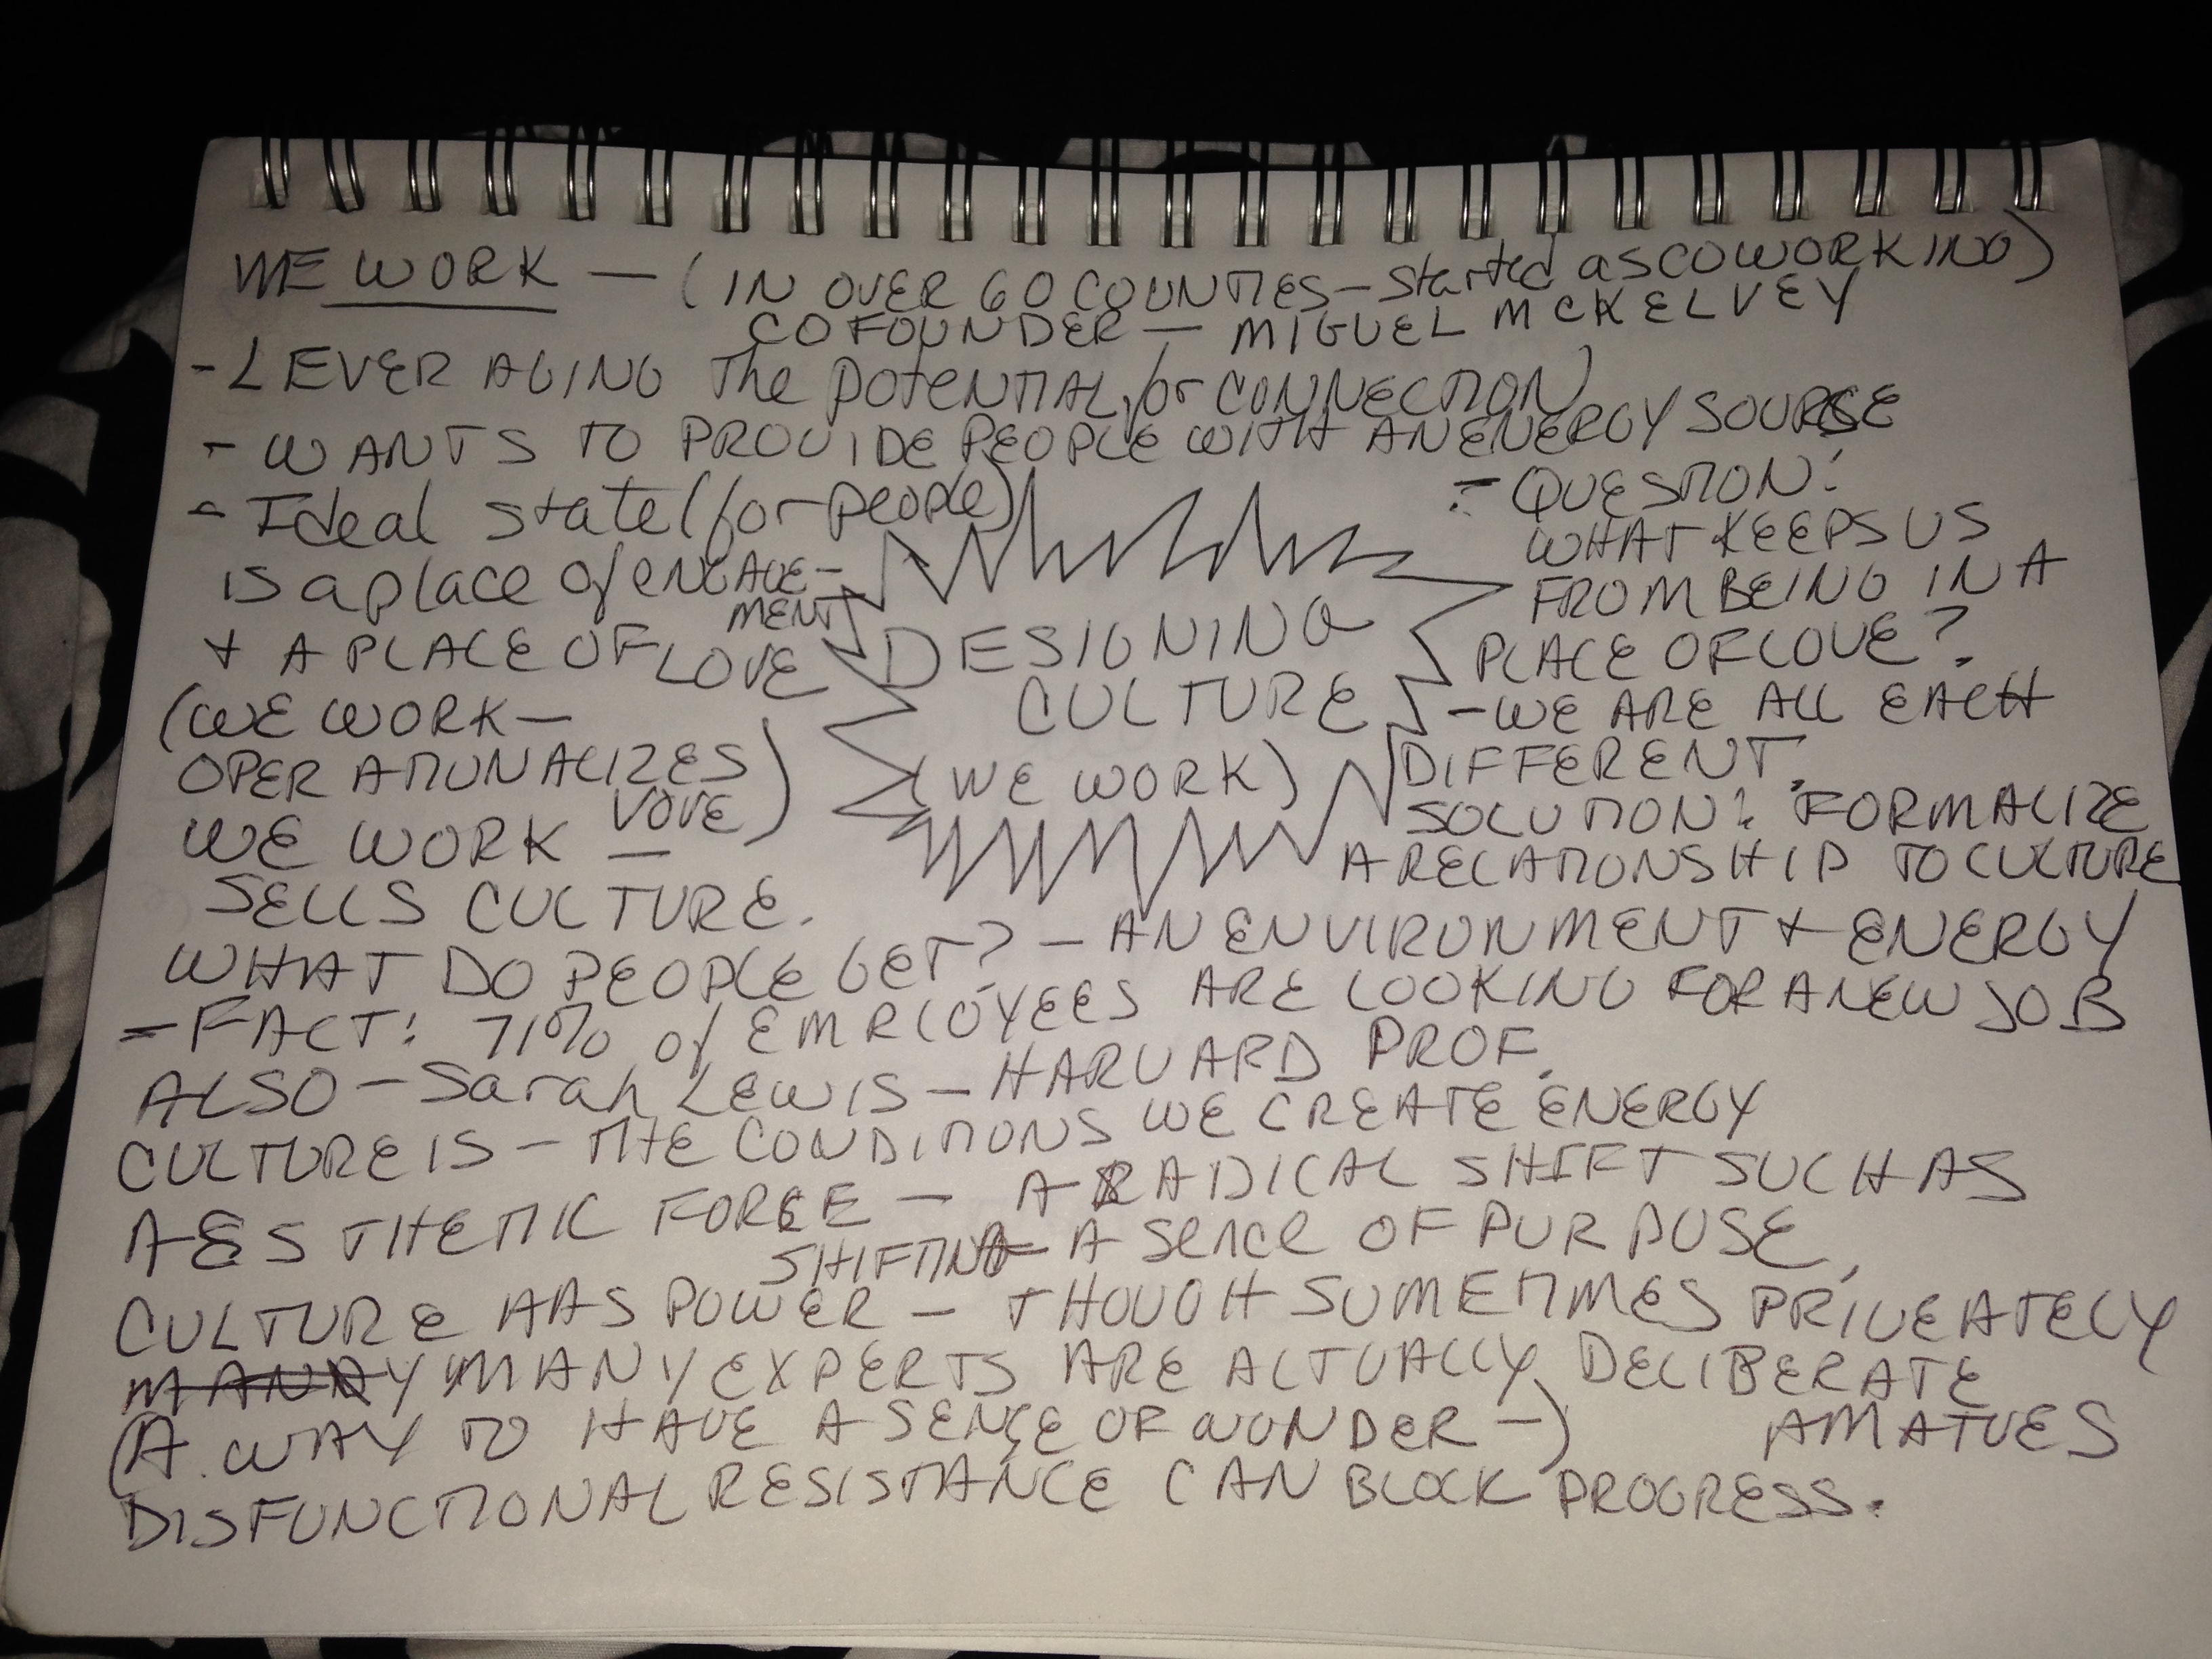 WE WORK — (IN OVER 60 COUNTIES - started as COWORKING)
COFOUNDER — MIGUEL MCKELVEY
- LEVERAGING The potENTIAL for CONNECTION
- WANTS TO PROVIDE PEOPLE WITH AN ENERGY SOURCE
- Ideal state (for people)
is a place of ENGAGE-
MENT
+ A PLACE OF LOVE
(WE WORK —
OPERATIONALIZES
LOVE)
WE WORK —
SELLS CULTURE.
DESIGNING
CULTURE
(WE WORK)
- QUESTION:
WHAT KEEPS US
FROM BEING IN A
PLACE OF LOVE?
- WE ARE ALL EACH
DIFFERENT.
SOLUTION: FORMALIZE
A RELATIONSHIP TO CULTURE
WHAT DO PEOPLE GET? - AN ENVIRONMENT + ENERGY
- FACT: 71% of EMPLOYEES ARE LOOKING FOR A NEW JOB
ALSO - Sarah LEWIS - HARVARD PROF.
CULTURE IS - THE CONDITIONS WE CREATE ENERGY
AESTHETIC FORCE - A RADICAL SHIFT SUCH AS
SHIFTING A SENCE OF PURPOSE.
CULTURE HAS POWER - THOUGH SOMETIMES PRIVEATELY
MANY MANY EXPERTS ARE ACTUALLY DELIBERATE
AMATUES
(A WAY TO HAVE A SENSE OF WONDER -)
DISFUNCTIONAL RESISTANCE CAN BLOCK PROGRESS.